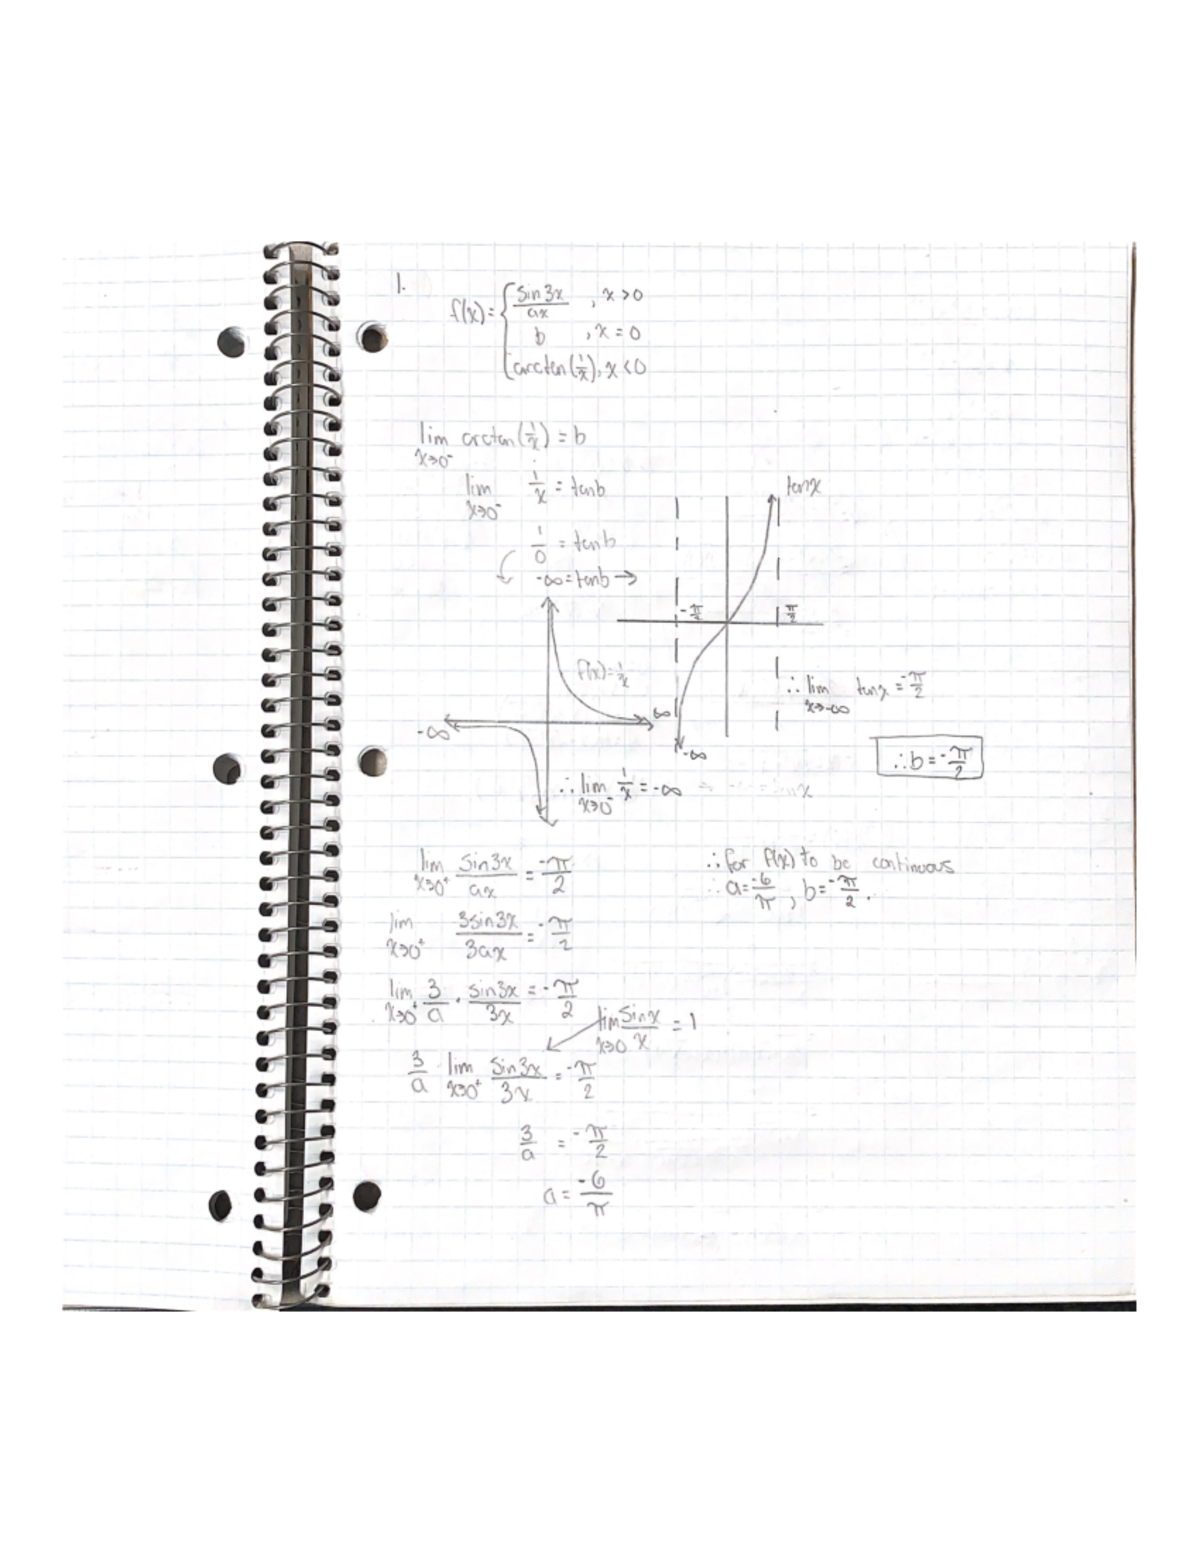 1.
f(x) = { sin3x/ax , x > 0
b , x = 0
arctan(1/x), x < 0
lim x→0⁻ arctan(1/x) = b
lim x→0⁻ 1/x = tanb
tanx
1/0 = tanb
-∞ = tanb →
-π/2 π/2
f(x) = 1/x
∴ lim x→-∞ tanx = -π/2
-∞ ∞
-∞
∴ b = -π/2
∴ lim x→0⁻ 1/x = -∞
lim x→0⁺ sin3x/ax = -π/2
lim x→0⁺ 3sin3x/3ax = -π/2
lim x→0⁺ 3/a · sin3x/3x = -π/2
lim x→0 sinx/x = 1
3/a lim x→0⁺ sin3x/3x = -π/2
3/a = -π/2
a = -6/π
∴ for f(x) to be continuous
∴ a = -6/π , b = -π/2 .